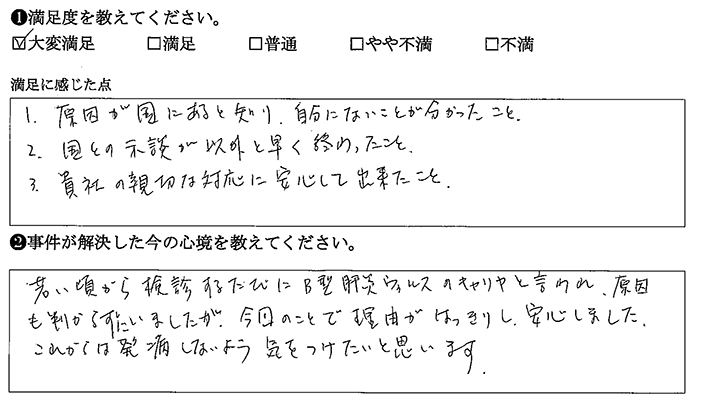 ❶満足度を教えてください。
☑大変満足 □満足 □普通 □やや不満 □不満
満足に感じた点
1. 原因が国にあると知り、自分にないことが分かったこと.
2. 国との示談が以外と早く終わったこと.
3. 貴社の親切な対応に安心して出来たこと.
❷事件が解決した今の心境を教えてください。
若い頃から検診するたびにB型肝炎ウィルスのキャリヤと言われ、原因
も判からずにいましたが、今回のことで理由がはっきりし、安心しました、
これからは発病しないよう気をつけたいと思います.